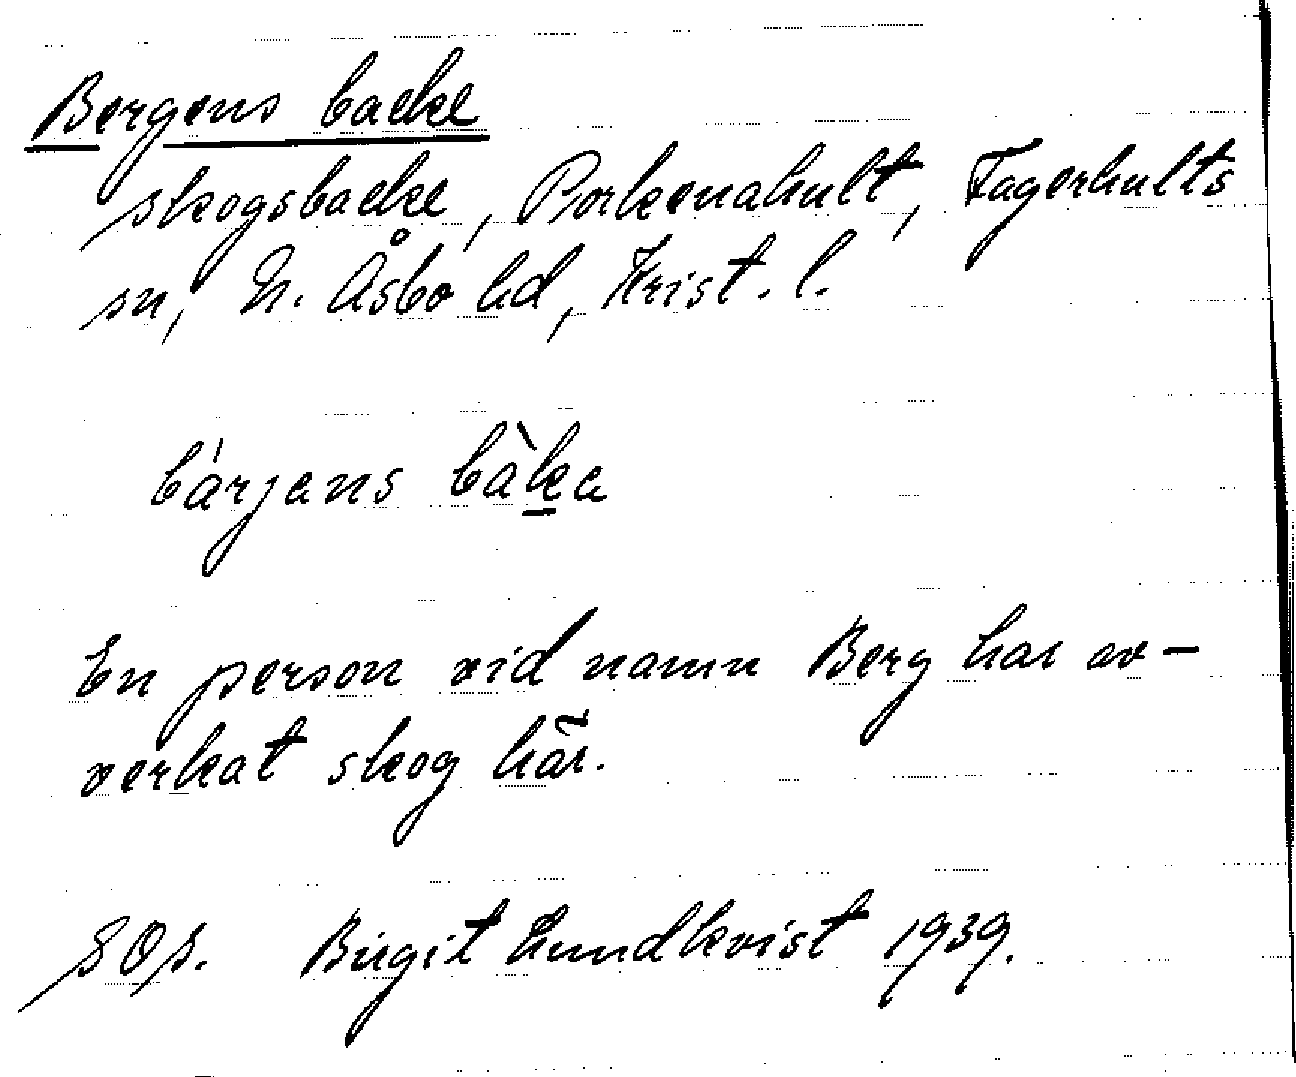 Bergens backe
skogsbacke, Porkenahult, Fagerhults
sn, N. Åsbo hd, Krist. l.
bárjens bàka
En person vid namn Berg har av-
verkat skog här.
SOS. Birgit Lundkvist 1939.